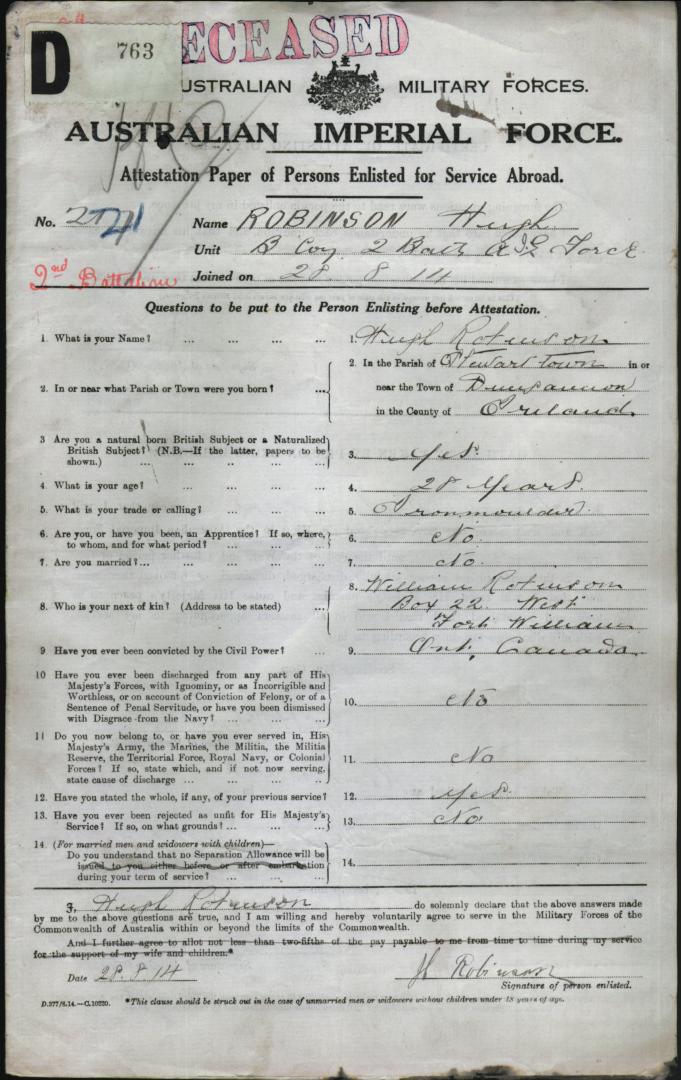 DECEASED
D 763
AUSTRALIAN MILITARY FORCES.
AUSTRALIAN IMPERIAL FORCE.
Attestation Paper of Persons Enlisted for Service Abroad.
No. Name ROBINSON Hugh
Unit B Coy 2 Batt A.I. Force
2nd Battalion
Joined on 28. 8. 14
Questions to be put to the Person Enlisting before Attestation.
1. What is your Name? ... ... ... ... 1. Hugh Robinson
2. In or near what Parish or Town were you born? ...
2. In the Parish of Stewartstown in or
near the Town of Dungannon
in the County of Ireland
3 Are you a natural born British Subject or a Naturalized
British Subject? (N.B.—If the latter, papers to be
shown.) ... ... .. ... ... 3. Yes.
4. What is your age? ... ... ... ... 4. 28 Years
5. What is your trade or calling? ... ... ... 5. Ironmoulder
6. Are you, or have you been, an Apprentice? If so, where,
to whom, and for what period? ... ... ... 6. No.
7. Are you married?... ... ... ... ... 7. No.
8. Who is your next of kin? (Address to be stated) ...
8. William Robinson
Box 22 West
Fort William
9 Have you ever been convicted by the Civil Power? ... 9. Ont. Canada
10 Have you ever been discharged from any part of His
Majesty's Forces, with Ignominy, or as Incorrigible and
Worthless, or on account of Conviction of Felony, or of a
Sentence of Penal Servitude, or have you been dismissed
with Disgrace from the Navy? ... ... ... 10. No
11 Do you now belong to, or have you ever served in, His
Majesty's Army, the Marines, the Militia, the Militia
Reserve, the Territorial Force, Royal Navy, or Colonial
Forces? If so, state which, and if not now serving,
state cause of discharge ... ... ... ... 11. No
12. Have you stated the whole, if any, of your previous service? 12. Yes.
13. Have you ever been rejected as unfit for His Majesty's
Service? If so, on what grounds? ... ... ... 13. No
14. (For married men and widowers with children)—
Do you understand that no Separation Allowance will be
issued to you either before or after embarkation
during your term of service? ... ... ... 14.
I, Hugh Robinson do solemnly declare that the above answers made
by me to the above questions are true, and I am willing and hereby voluntarily agree to serve in the Military Forces of the
Commonwealth of Australia within or beyond the limits of the Commonwealth.
And I further agree to allot not less than two-fifths of the pay payable to me from time to time during my service
for the support of my wife and children.*
Date 28. 8. 14 H Robinson
Signature of person enlisted.
D.377/8.14.—C.10220. *This clause should be struck out in the case of unmarried men or widowers without children under 18 years of age.